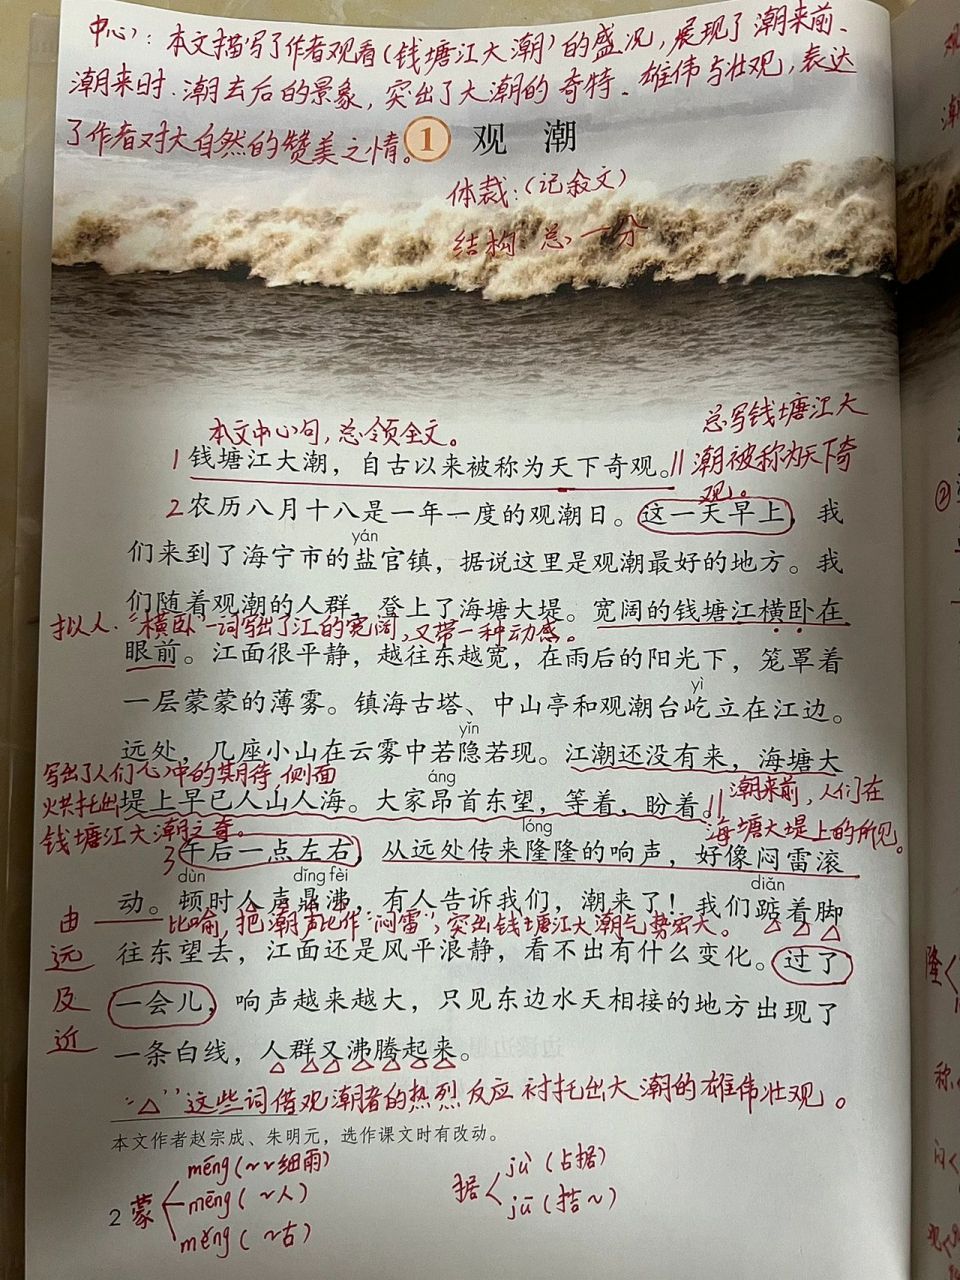 中心：本文描写了作者观看（钱塘江大潮）的盛况，展现了潮来前、
潮来时、潮去后的景象，突出了大潮的奇特、雄伟与壮观，表达
了作者对大自然的赞美之情。
1 观 潮
体裁：（记叙文）
结构：总—分
本文中心句，总领全文。
总写钱塘江大
潮被称为天下奇
观。
1 钱塘江大潮，自古以来被称为天下奇观。
2 农历八月十八是一年一度的观潮日。这一天早上，我
yán
们来到了海宁市的盐官镇，据说这里是观潮最好的地方。我
们随着观潮的人群，登上了海塘大堤。宽阔的钱塘江横卧在
拟人、“横卧”一词写出了江的宽阔，又带一种动感。
眼前。江面很平静，越往东越宽，在雨后的阳光下，笼罩着
一层蒙蒙的薄雾。镇海古塔、中山亭和观潮台屹立在江边。
yì
yǐn
远处，几座小山在云雾中若隐若现。江潮还没有来，海塘大
写出了人们心中的期待，侧面
烘托出
钱塘江大潮之奇。
áng
堤上早已人山人海。大家昂首东望，等着，盼着。
潮来前，人们在
海塘大堤上的所见。
lóng
3 午后一点左右，从远处传来隆隆的响声，好像闷雷滚
dùn dǐng fèi diǎn
动。顿时人声鼎沸，有人告诉我们，潮来了！我们踮着脚
比喻，把潮声比作“闷雷”，突出钱塘江大潮气势宏大。
由
远
及
近
往东望去，江面还是风平浪静，看不出有什么变化。过了
一会儿，响声越来越大，只见东边水天相接的地方出现了
一条白线，人群又沸腾起来。
“△”这些词借观潮者的热烈反应衬托出大潮的雄伟壮观。
本文作者赵宗成、朱明元，选作课文时有改动。
蒙
méng（~~细雨）
mēng（~人）
měng（~古）
据
jù（占据）
jū（拮~）
2